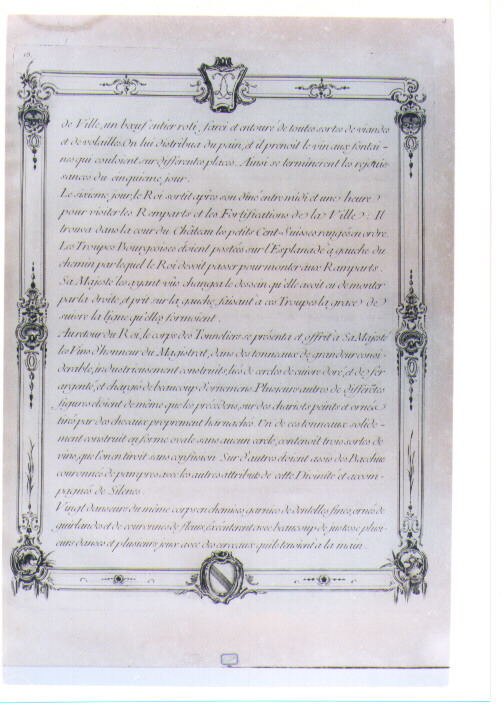 19.
de Ville, un bœuf entier roti, farci et entouré de toutes sortes de viandes
et de volailles. On lui distribua du pain, et il prenoit le vin aux fontai-
nes qui couloient sur differentes places. Ainsi se terminerent les rejouis
sances du cinquieme jour.
Le sixieme jour, le Roi sortit après son dîné entre midi et une heure
pour visiter les Remparts et les Fortifications de la Ville. Il
trouva dans la cour du Château les petits Cent-Suisses rangés en ordre.
Les Troupes Bourgeoises étoient postées sur l'Esplanade à gauche du
chemin par lequel le Roi devoit passer pour monter aux Ramparts.
Sa Majesté les ayant vûs changea le dessein qu'elle avoit eu de monter
par la droite, et prit sur la gauche, faisant à ces Troupes la grace de
suivre la ligne qu'elles formoient.
Au retour du Roi, le corps des Tonneliers se présenta et offrit à Sa Majesté
les Vins d'honneur du Magistrat, dans des tonneaux de grandeur consi-
derable, industrieusement construits, liés de cercles de cuivre doré, et de fer
argenté, et chargés de beaucoup d'ornemens. Plusieurs autres de differêtes
figures étoient de même que les précédens, sur des chariots peints et ornés
tirés par des chevaux proprement harnachés. Un de ces tonneaux solide-
ment construit en forme ovale sans aucun cercle, contenoit trois sortes de
vins, que l'on en tiroit sans confusion. Sur d'autres étoient assis des Bacchus
couronnés de pampres avec les autres attributs de cette Divinité et accom-
pagnés de Silenes.
Vingt danseurs du même corps en chemises garnies de dentelles fines, ornés de
guirlandes et de couronnes de fleurs, exécuterent avec beaucoup de justesse plusi-
eurs dances et plusieurs jeux avec des cerceaux qu'ils tenoient à la main.